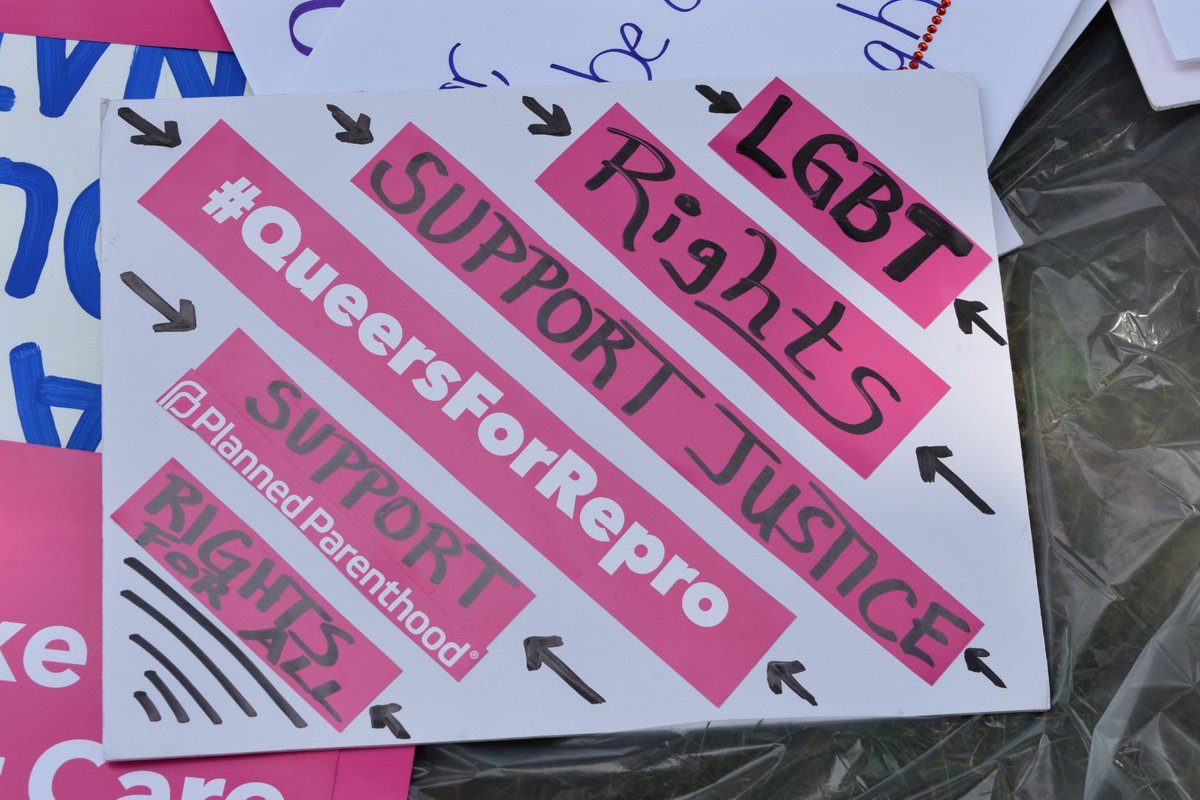 LGBT
Rights
SUPPORT JUSTICE
#QueersForRepro
SUPPORT
Planned Parenthood®
RIGHTS
FOR ALL
be
Care